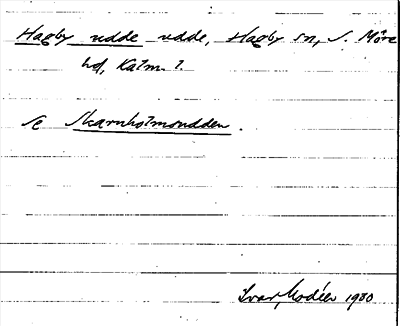 Hagby udde udde, Hagby sn, S. Möre
hd, Kalm. l.
se Skarnholmsudden.
Ivar Modéer 1930